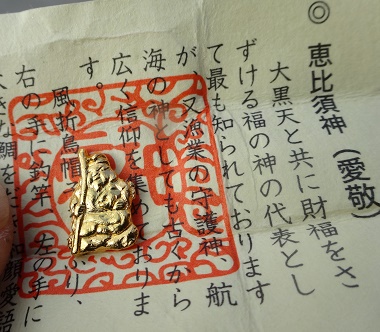 ◎ 恵比須神（愛敬）
大黒天と共に財福をさ
ずける福の神の代表とし
て最も知られております
が、又漁業の守護神、航
海の神としても古くから
広く信仰を集めておりま
す。
風折烏帽
右の手に釣竿、左の手に
大きな鯛を